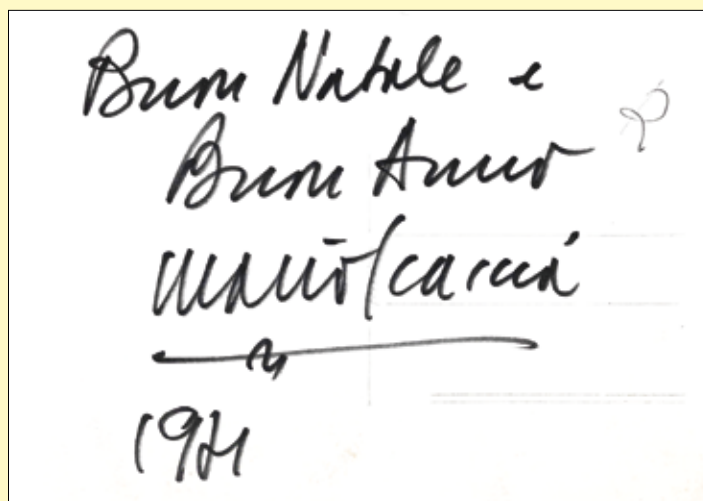 Buon Natale e
Buon Anno
Mario Scaccia
1971